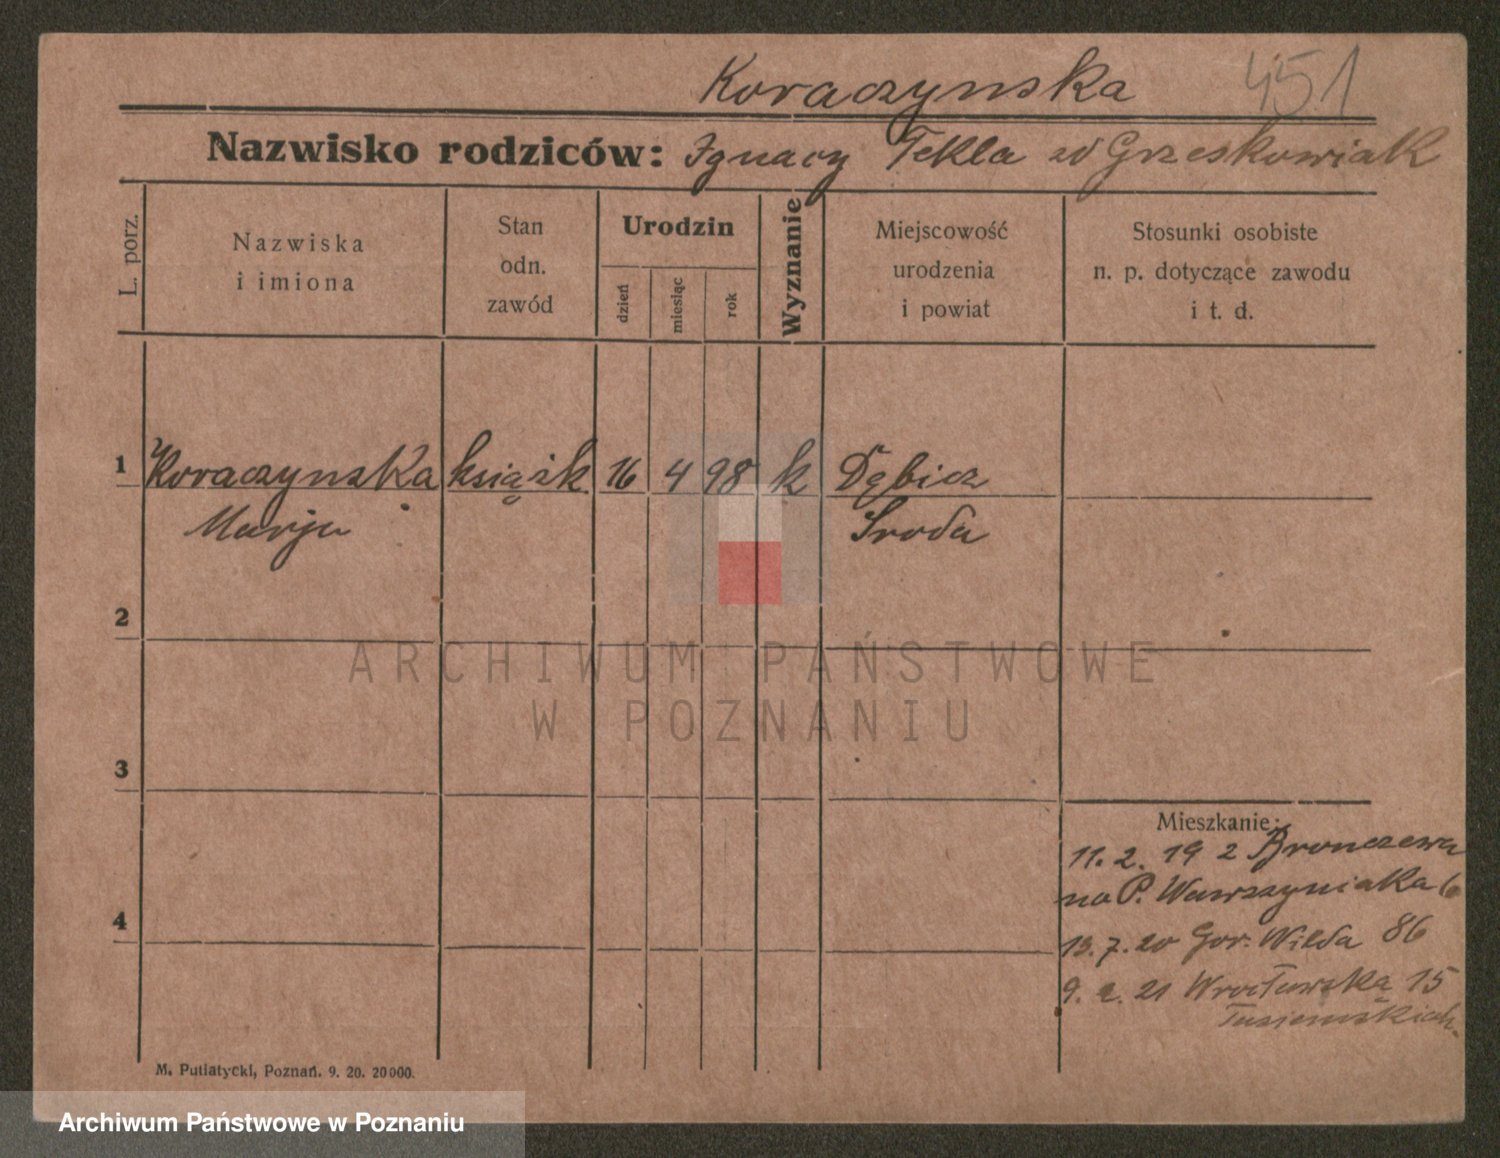 Koraczynska 451
Nazwisko rodziców: Ignacy Tekla zd Grzeskowiak
L. porz.
Nazwiska
i imiona
Stan
odn.
zawód
Urodzin
dzień
miesiąc
rok
Wyznanie
Miejscowość
urodzenia
i powiat
Stosunki osobiste
n. p. dotyczące zawodu
i t. d.
1 Koraczynska książk 16 4 98 k Dębicz
Marja Sroda
2
3
4
Mieszkanie:
11. 2. 19 2
na P. Wawrzyniaka 6
13. 7. 20 Gor. Wilda 86
9. 2. 21 Wrocławska 15
M. Putiatycki, Poznań. 9. 20. 20000.
ARCHIWUM PAŃSTWOWE
W POZNANIU
Archiwum Państwowe w Poznaniu